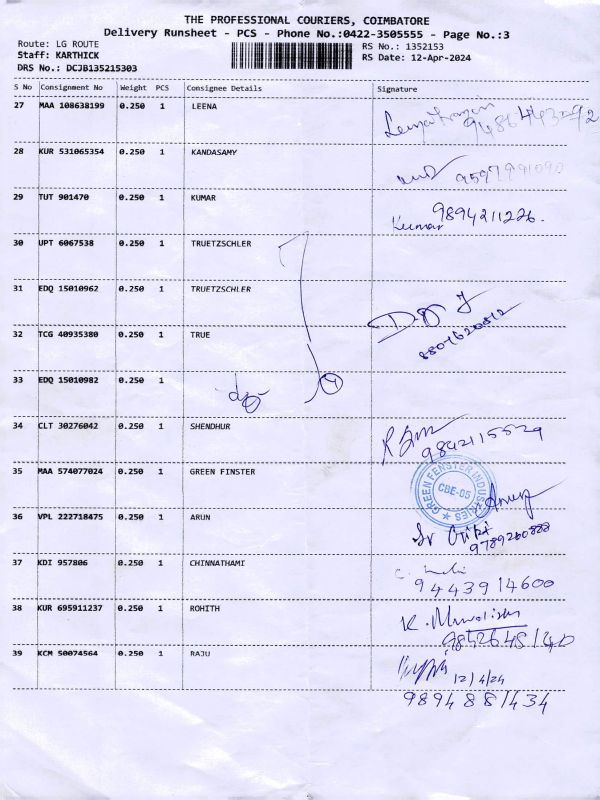 THE PROFESSIONAL COURIERS, COIMBATORE
Delivery Runsheet - PCS - Phone No.:0422-3505555 - Page No.:3
Route: LG ROUTE
RS No.: 1352153
Staff: KARTHICK
RS Date: 12-Apr-2024
DRS No.: DCJB135215303
S No Consignment No Weight PCS Consignee Details Signature
27 MAA 108638199 0.250 1 LEENA
28 KUR 531065354 0.250 1 KANDASAMY
29 TUT 901470 0.250 1 KUMAR
9894211226.
Kumar
30 UPT 6067538 0.250 1 TRUETZSCHLER
31 EDQ 15010962 0.250 1 TRUETZSCHLER
32 TCG 40935380 0.250 1 TRUE
33 EDQ 15010982 0.250 1
4
34 CLT 30276042 0.250 1 SHENDHUR
9842115529
35 MAA 574077024 0.250 1 GREEN FINSTER
GREEN FENSTER INDUSTRIES
CBE-05
36 VPL 222718475 0.250 1 ARUN
9789260888
37 KDI 957806 0.250 1 CHINNATHAMI
9443914600
38 KUR 695911237 0.250 1 ROHITH
9842648140
39 KCM 50074564 0.250 1 RAJU
12/4/24
9894881434